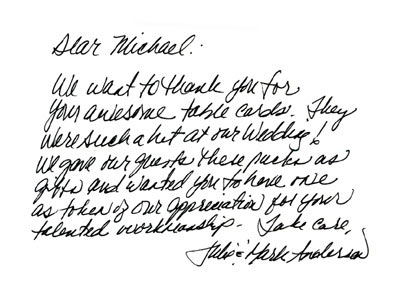 Dear Michael:
We want to thank you for
your awesome table cards. They
were such a hit at our Wedding!
We gave our guests these packs as
gifts and wanted you to have one
as token of our appreciation for your
talented workmanship. Take care,
Julie & Mark Anderson